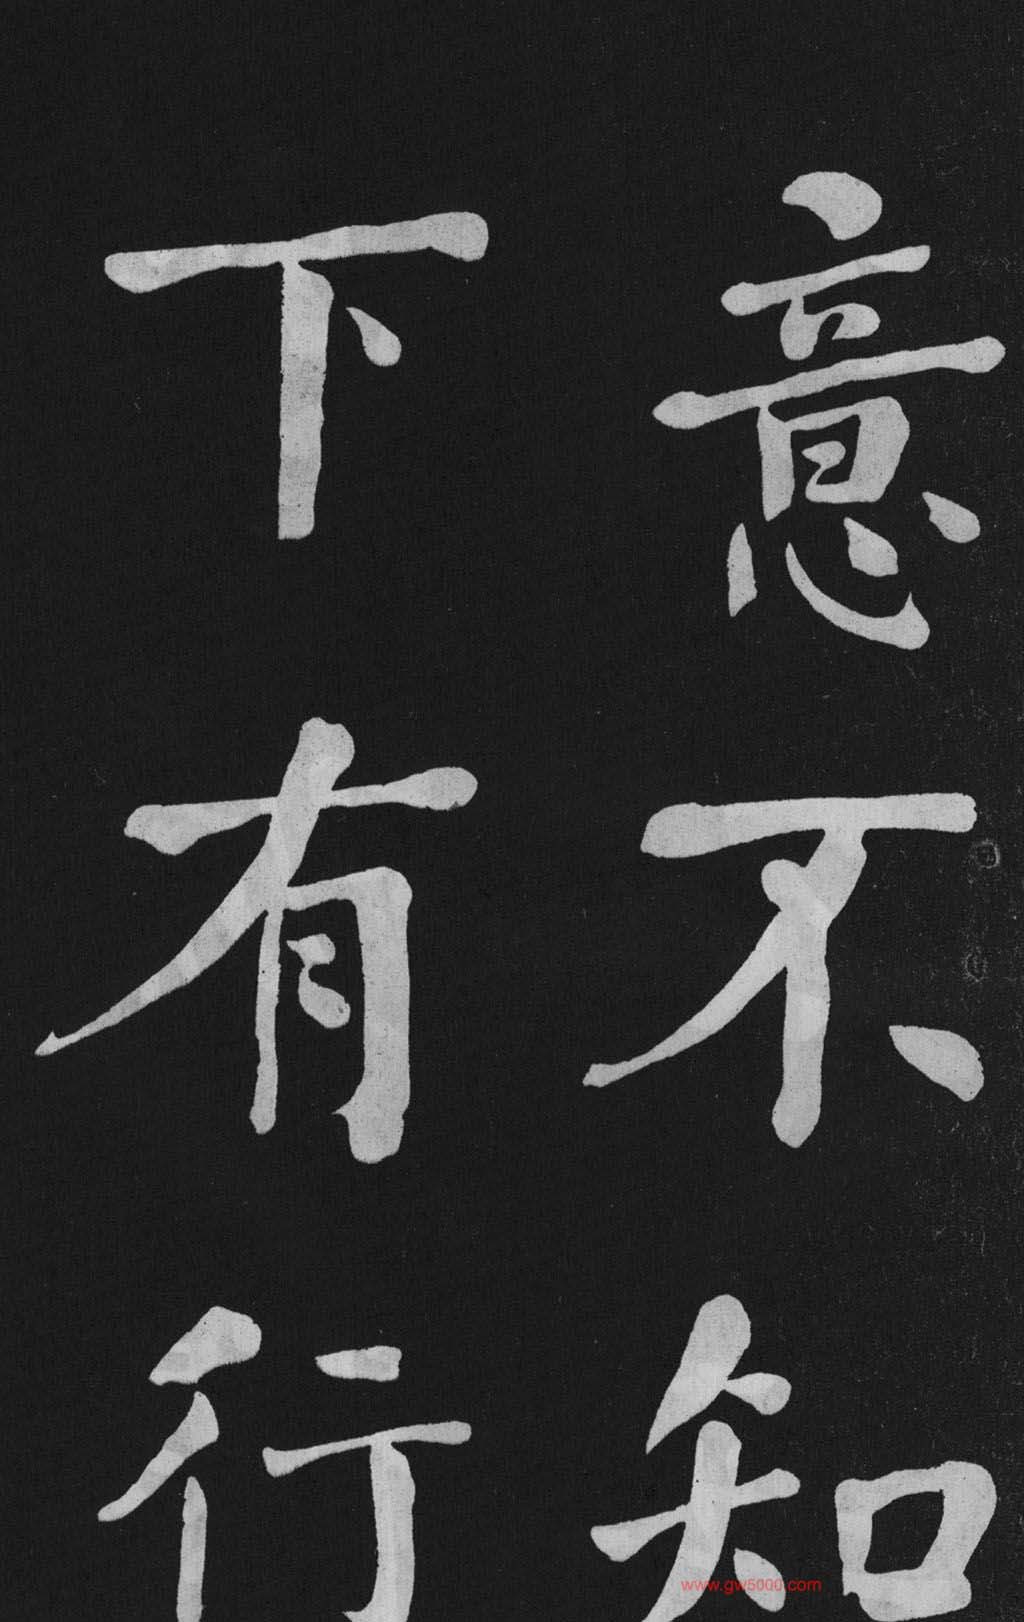 意不知
下有行
www.gw5000.com